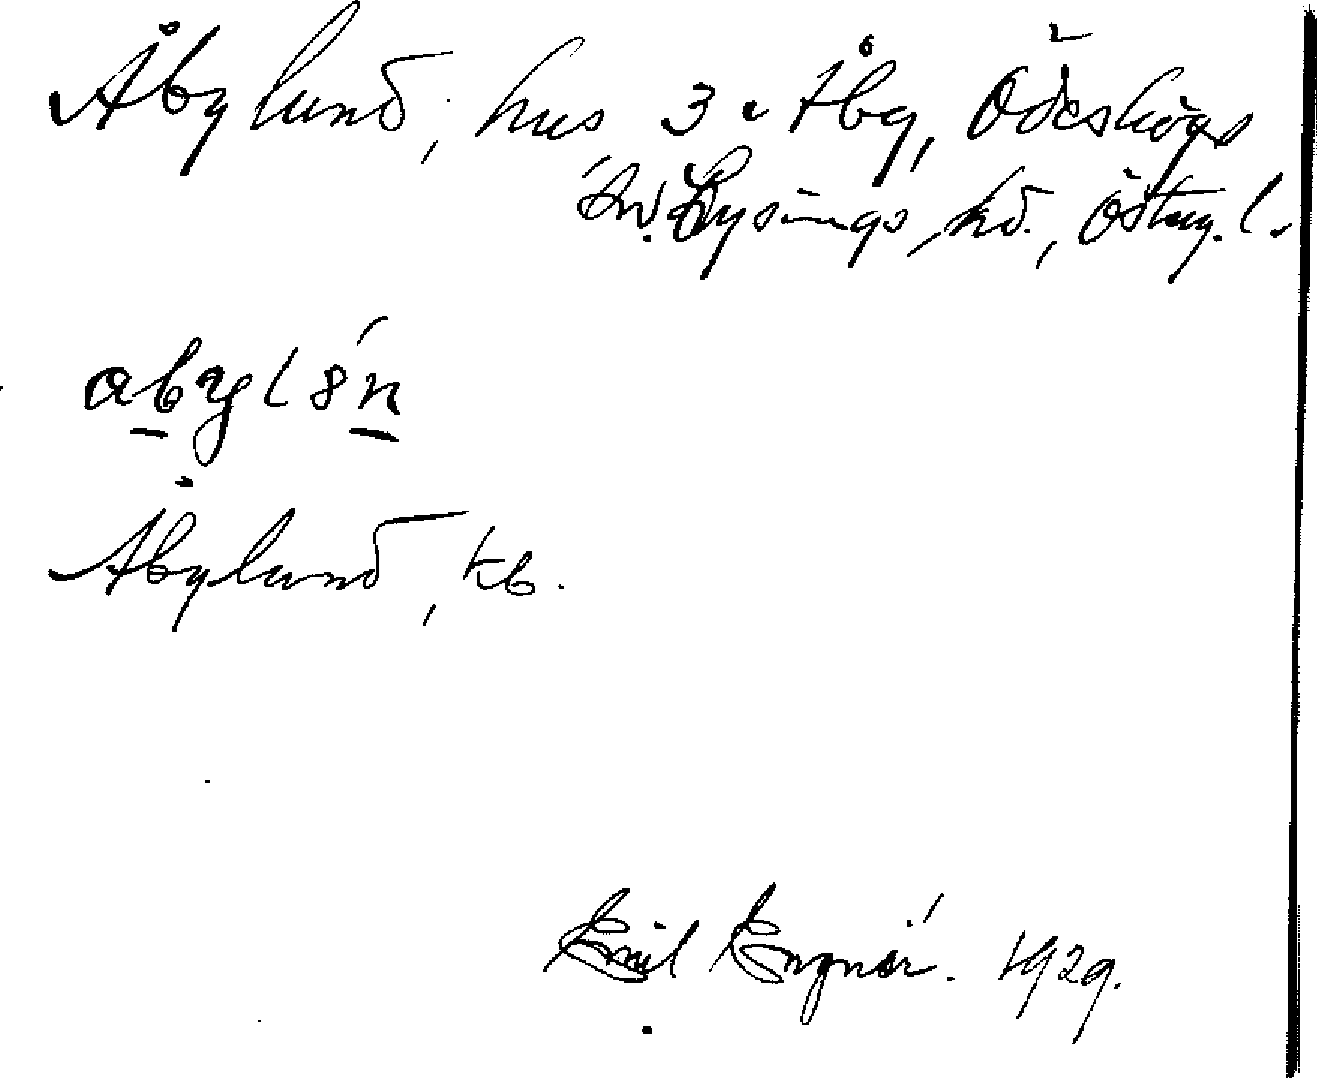 Åbylund, hus 3 Åby, Ödeshögs
sn. Lysings hd., Östg. l.
abylȣ́n
Åbylund, kb.
Emil Engnér. 1929.